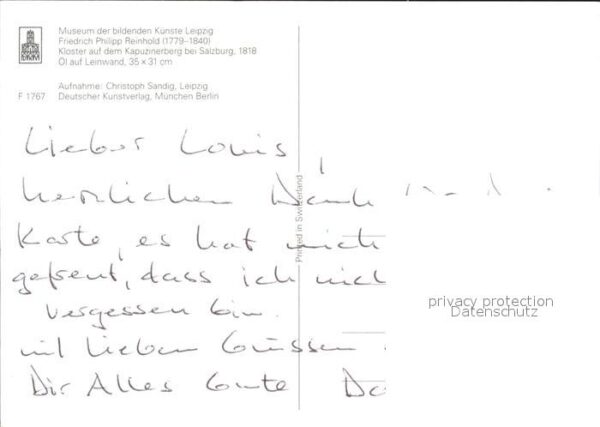 Museum der bildenden Künste Leipzig
Friedrich Philipp Reinhold (1779–1840)
Kloster auf dem Kapuzinerberg bei Salzburg, 1818
Öl auf Leinwand, 35 × 31 cm
Aufnahme: Christoph Sandig, Leipzig
F 1767 Deutscher Kunstverlag, München Berlin
Printed in Switzerland
Lieber Louis,
herzlichen Dank
Karte, es hat mich
gefreut, dass ich nich
vergessen bin.
mit lieben Grüssen
Dir Alles Gute Da
privacy protection
Datenschutz